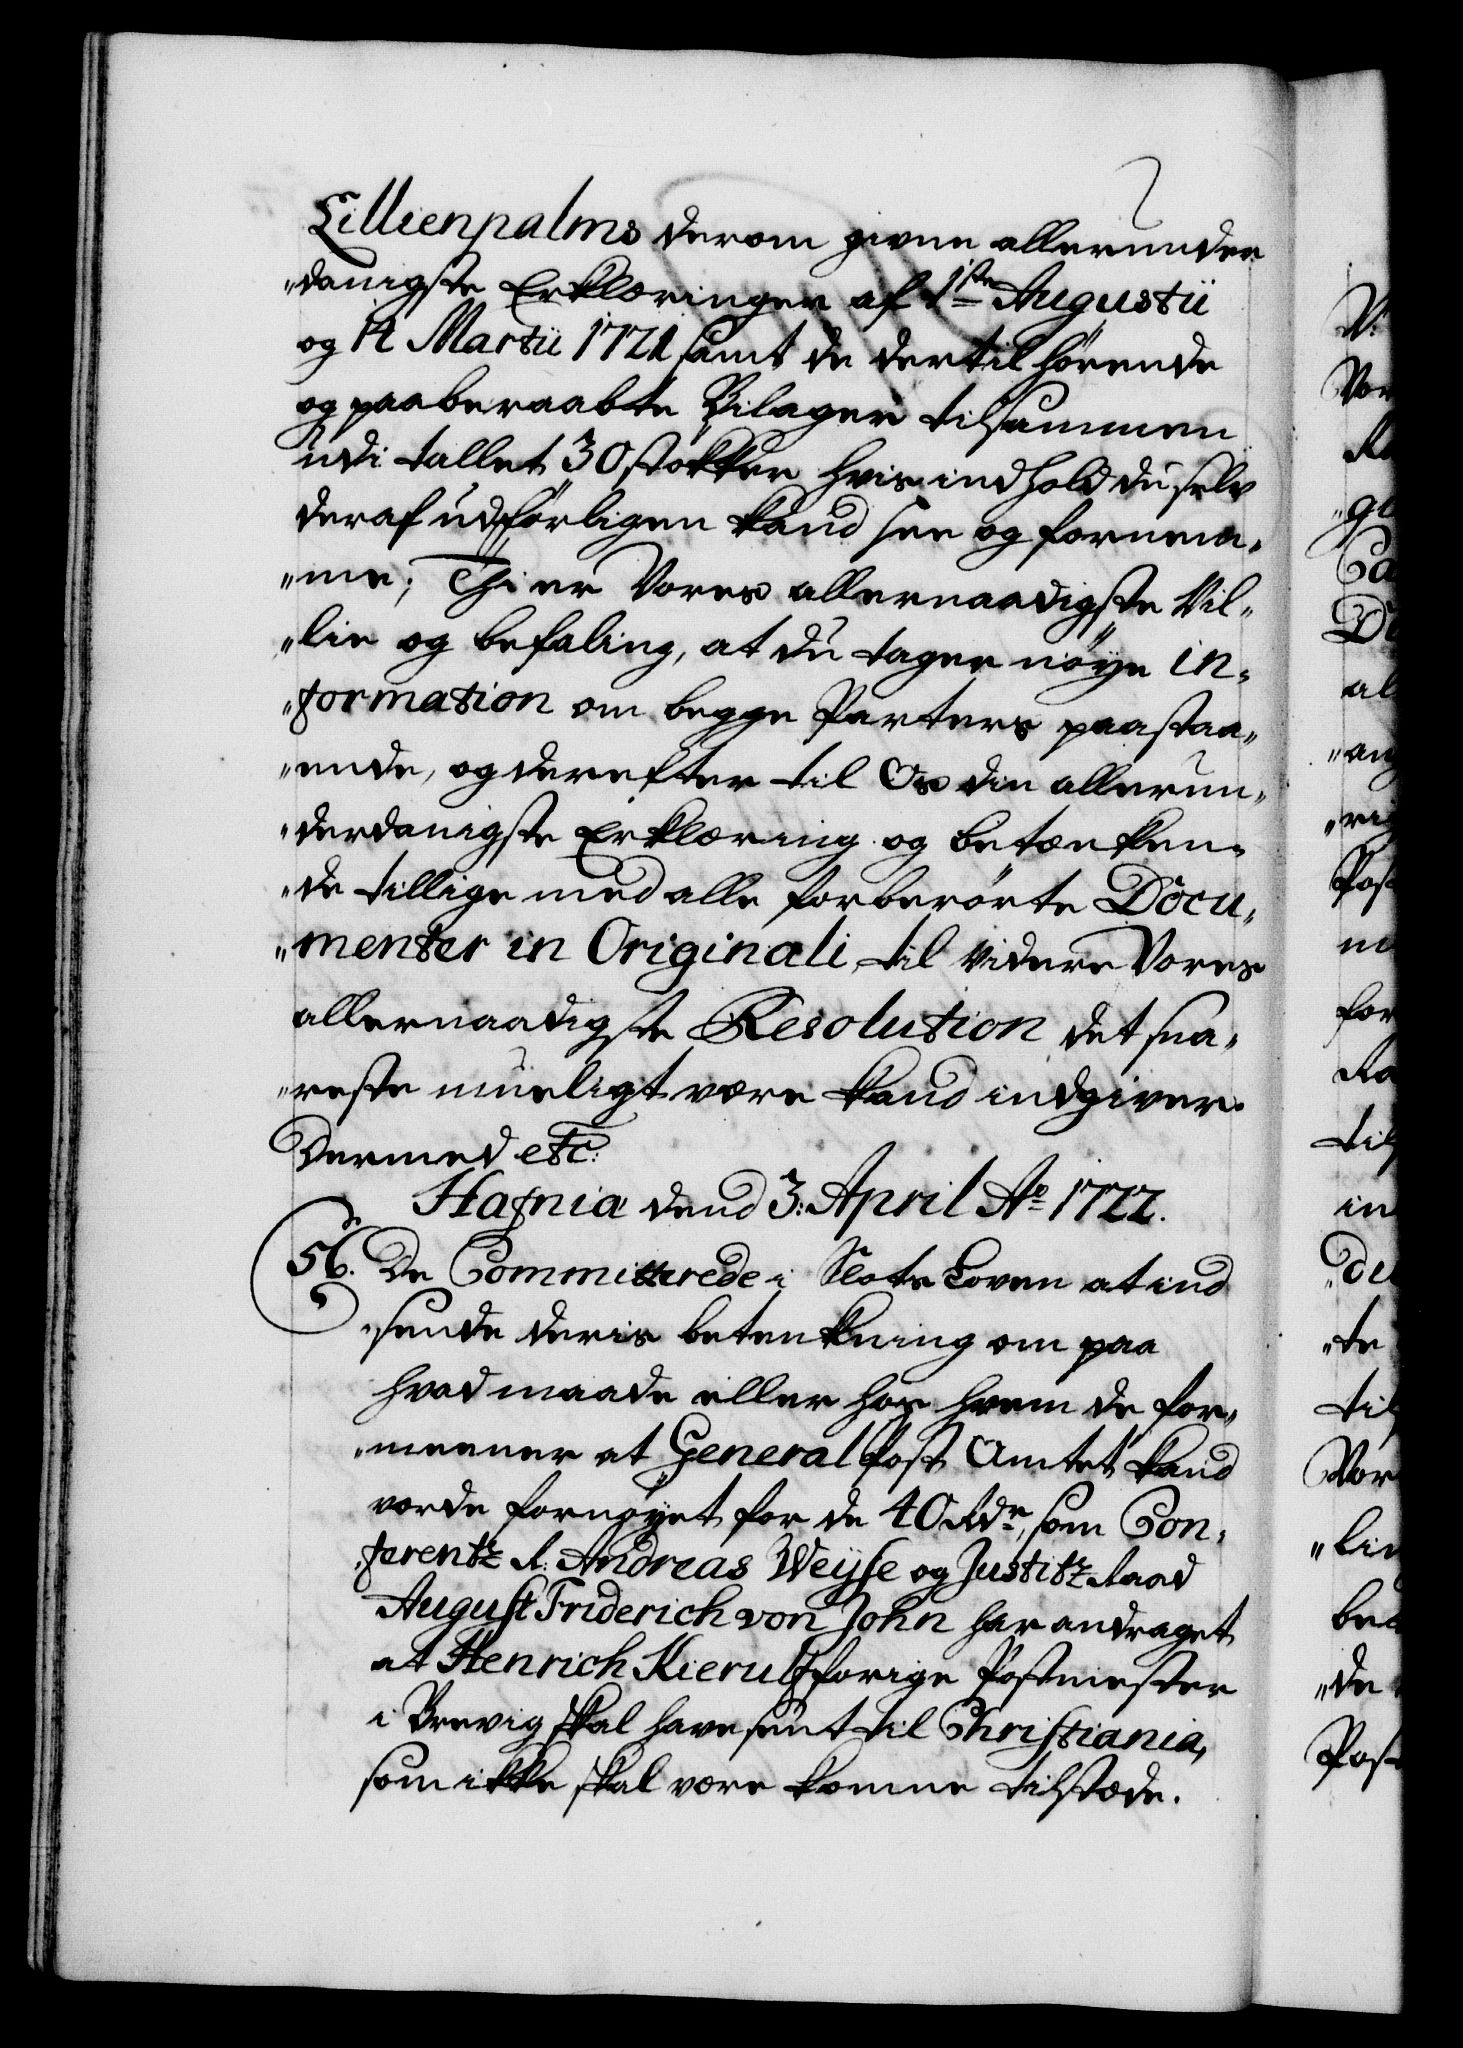 Lillienpalms derom givne allerunder
"danigste Erklæringer af 1ste Augustii
og 14 Martii 1721 samt de dertil hörende
og paaberaabte Bilager tilsammen
udi tallet 30 støkker hvis indhold du selv
deraf udförligen kand see og fornem-
"me; Thi er Vores allernaadigste Vil-
"lie og befaling, at du tager nöye in-
"formation om begge Parters paastaa-
"ende, og derefter til Os din allerun-
"derdanigste Erklæring og betænken-
"de tillige med alle forberörte Docu-
"menter in Originali, til videre Vores
allernaadigste Resolution det sna-
"reste mueligt være kand indgiver.
Dermed etc:
Hafnia dend 3: April Ao 1722.
56. De Committerede i Slots Loven at ind
"sende deris betenkning om paa
hvad maade eller hos hvem de for-
"meener at General Post Amtet kand
vorde fornøyet for de 40 Rdr, som Con-
"ferentz R: Andreas Weyse og Justitz Raad
August Friderich von John har andraget
at Henrich Kierulf forige Postmester
i Brevig skal have sendt til Christiania,
som ikke skal være komne tilstæde.